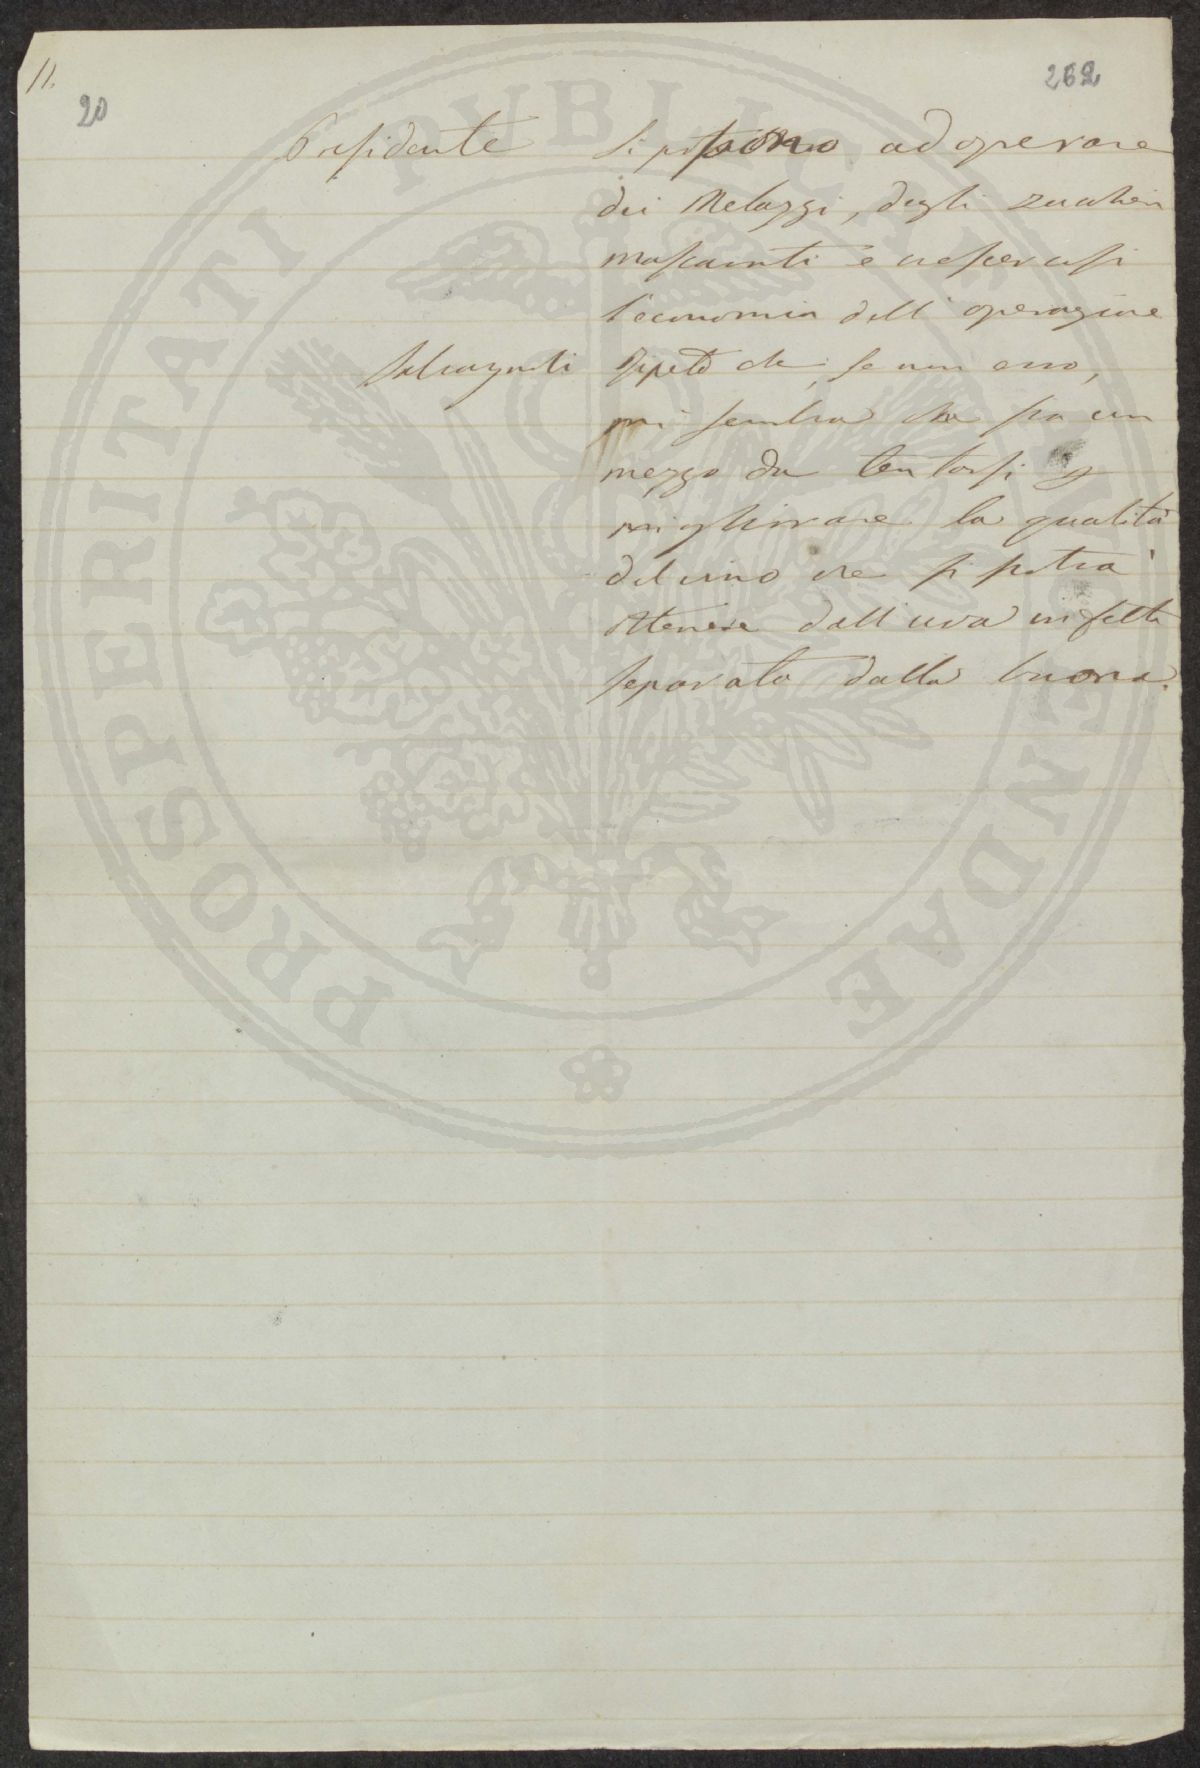 11.
20
262
Presidente Si possono adoperare
dei Melazzi, degli zuccheri
mascavati e crescerassi
l'economia dell'operazione
Salvagnoli Ripeto che, se non erro,
mi sembra che sia un
mezzo da tentarsi p
migliorare la qualità
del vino che si potrà
ottenere dall'uva infetta
separata dalla buona.
PROSPERITATI PVBLICAE AVGENDAE